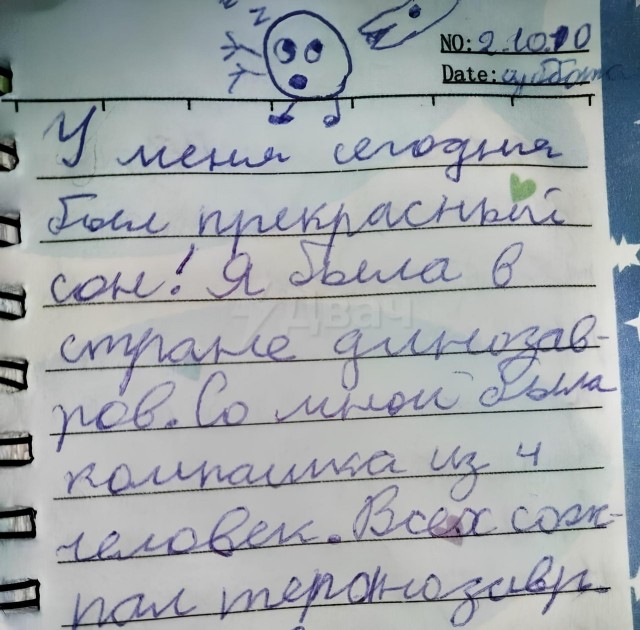 NO: 2.10.10
Date: суббота
У меня сегодня
был прекрасный
сон! Я была в
стране динозав-
ров. Со мной была
компашка из 4
человек. Всех сож-
рал теранозавр.
Двач